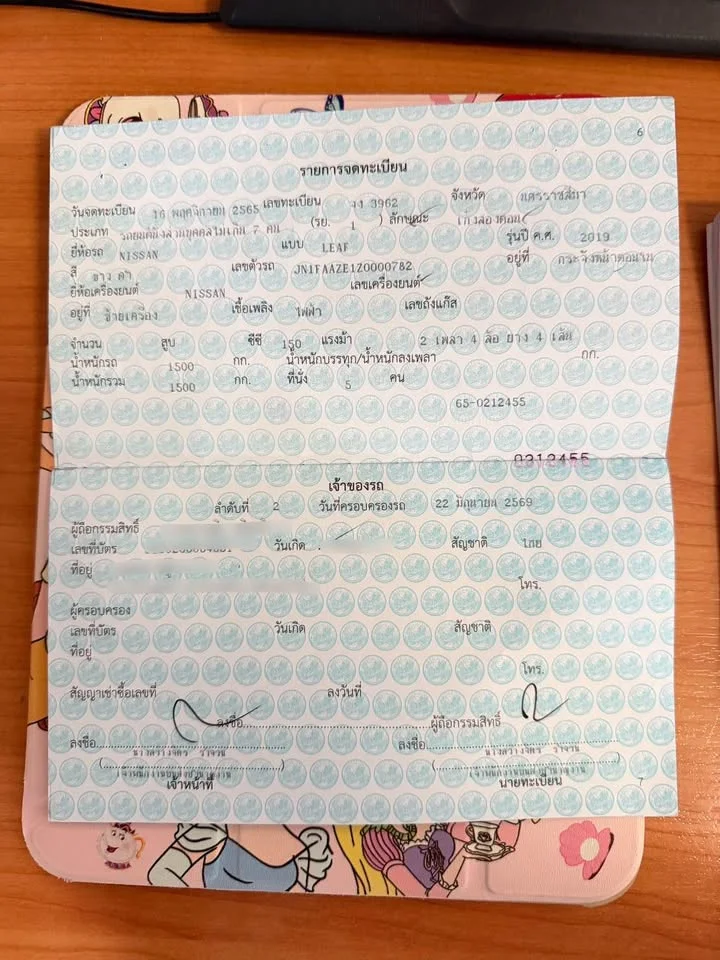 6
รายการจดทะเบียน
วันจดทะเบียน 16 พฤศจิกายน 2565 เลขทะเบียน 3962 จังหวัด นครราชสีมา
ประเภท รถยนต์นั่งส่วนบุคคลไม่เกิน 7 คน (รย. 1 ) ลักษณะ เก๋งสองตอน
ยี่ห้อรถ NISSAN แบบ LEAF รุ่นปี ค.ศ. 2019
สี ขาว ดำ เลขตัวรถ JN1FAAZE1Z0000782 อยู่ที่
ยี่ห้อเครื่องยนต์ NISSAN เลขเครื่องยนต์
อยู่ที่ ซ้ายเครื่อง เชื้อเพลิง ไฟฟ้า เลขถังแก๊ส
จำนวน สูบ ซีซี 150 แรงม้า 2 เพลา 4 ล้อ ยาง 4 เส้น
น้ำหนักรถ 1500 กก. น้ำหนักบรรทุก/น้ำหนักลงเพลา กก.
น้ำหนักรวม 1500 กก. ที่นั่ง 5 คน
65-0212455
0212455
เจ้าของรถ
ลำดับที่ 2 วันที่ครอบครองรถ 22 มิถุนายน 2569
ผู้ถือกรรมสิทธิ์
เลขที่บัตร วันเกิด สัญชาติ ไทย
ที่อยู่
โทร.
ผู้ครอบครอง
เลขที่บัตร วันเกิด สัญชาติ
ที่อยู่
โทร.
สัญญาเช่าซื้อเลขที่ ลงวันที่
ลงชื่อ ผู้ถือกรรมสิทธิ์
ลงชื่อ ลงชื่อ
เจ้าหน้าที่ นายทะเบียน
7